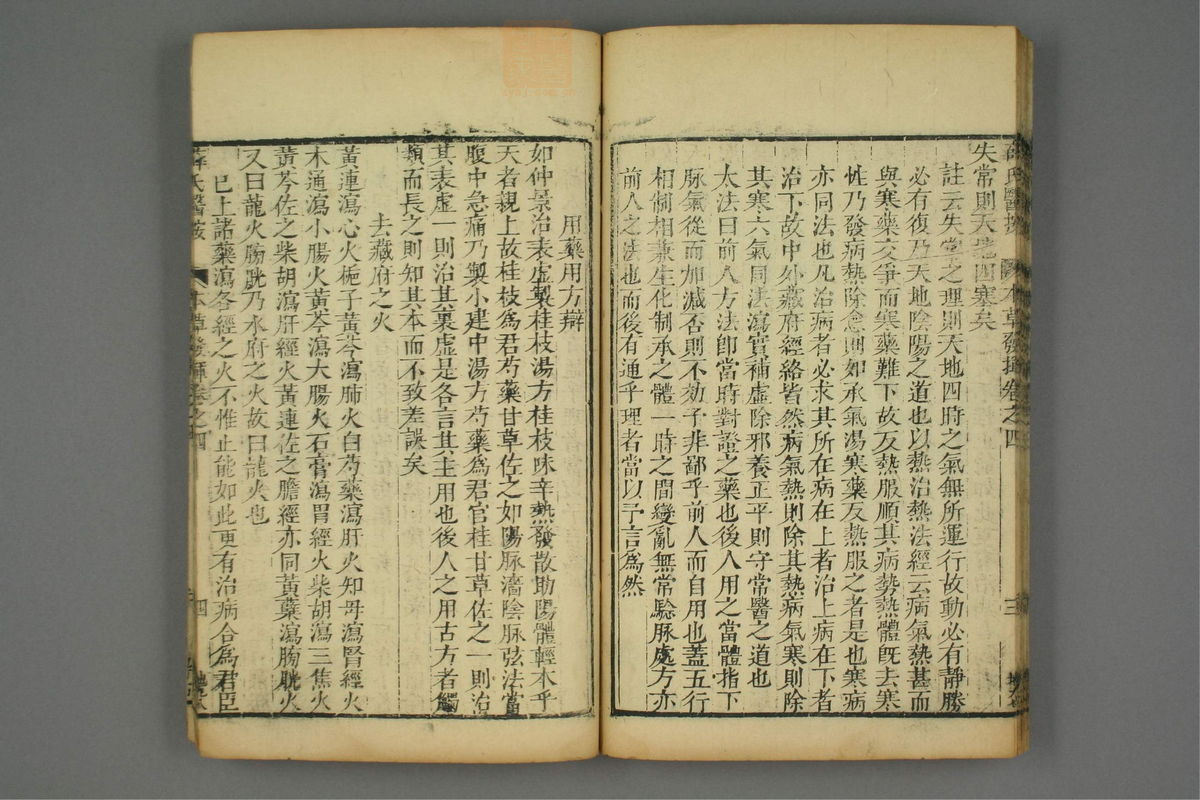 薛氏醫按 本草發揮卷之四 三
失常則天地四塞矣
註云失常之理則天地四時之氣無所運行故動必有靜勝
必有復乃天地陰陽之道也以熱治熱法經云病氣熱甚而
與寒藥交爭而寒藥難下故反熱服順其病勢熱體既去寒
性乃發病熱除愈則如承氣湯寒藥反熱服之者是也寒病
亦同法也凡治病者必求其所在病在上者治上病在下者
治下故中外藏府經絡皆然病氣熱則除其熱病氣寒則除
其寒六氣同法瀉實補虛除邪養正平則守常醫之道也
太法曰前人方法即當時對證之藥也後人用之當體指下
脉氣從而加減否則不効子非鄙乎前人而自用也蓋五行
相制相兼生化制承之體一時之間變亂無常驗脉處方亦
前人之法也而後有通乎理者當以予言為然
用藥用方辯
如仲景治表虛製桂枝湯方桂枝味辛熱發散助陽體輕本乎
天者親上故桂枝爲君芍藥甘草佐之如陽脉濇陰脉弦法當
腹中急痛乃製小建中湯方芍藥爲君官桂甘草佐之一則治
其表虛一則治其裏虛是各言其主用也後人之用古方者觸
類而長之則知其本而不致差誤矣
去藏府之火
黃連瀉心火梔子黃芩瀉肺火白芍藥瀉肝火知母瀉腎經火
木通瀉小腸火黃芩瀉大腸火石膏瀉胃經火柴胡瀉三焦火
黃芩佐之柴胡瀉肝經火黃連佐之膽經亦同黃蘗瀉膀胱火
又曰龍火膀胱乃水府之火故曰龍火也
已上諸藥瀉各經之火不惟止能如此更有治病合爲君臣
薛氏醫按 本草發揮卷之四 四